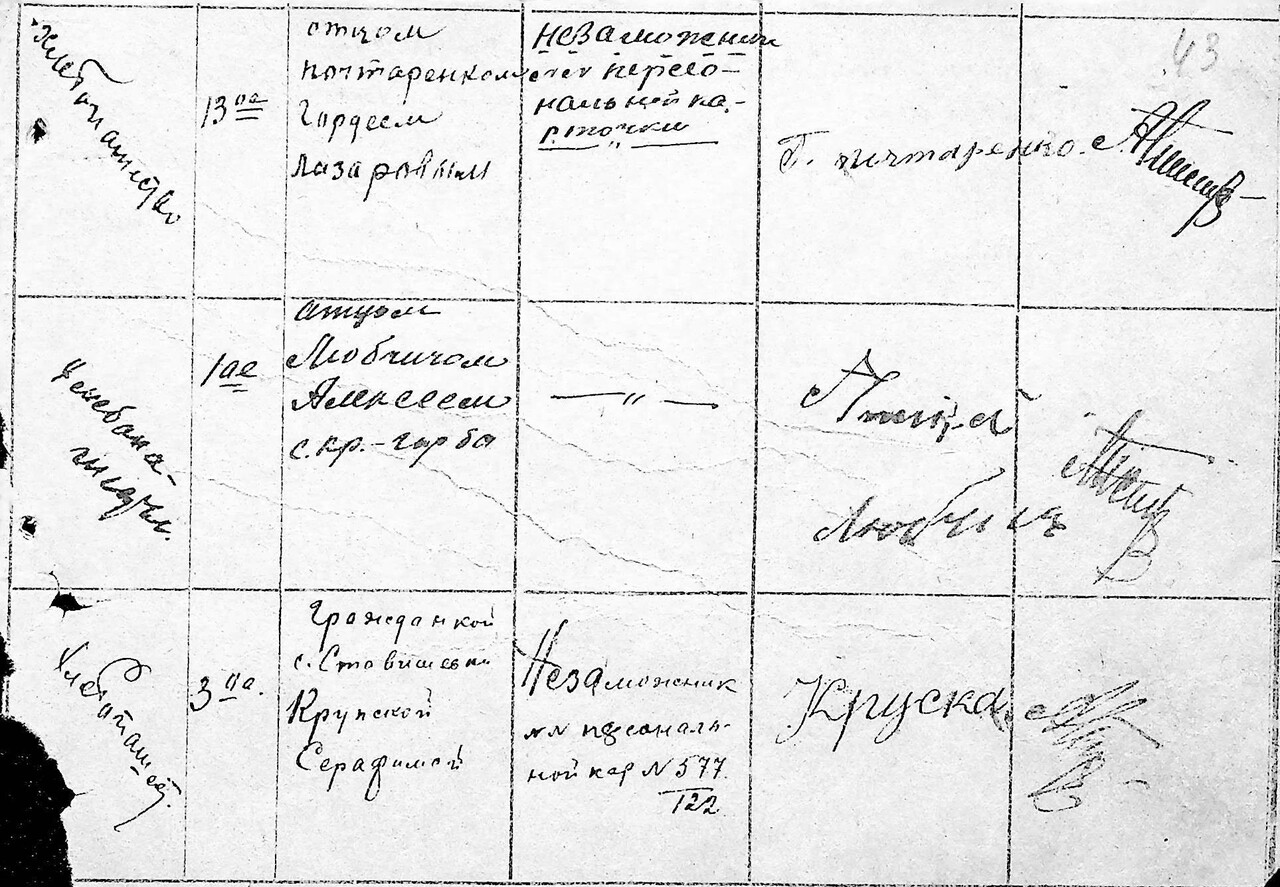 43
Хлебопашество
13ое
отцом
почтаренком
Гордеем
Лазаровым
незаможник
персо-
нальной ка-
рточки
Г. почтаренко
1ое
отцом
Любчичом
Алексеем
с. кр.-горба
— „ —
Любчич
Хлебопашес.
3ое.
Гражданкой
с. Ставищевки
Крупской
Серафимой
Незаможник
№№ персональ-
ной кар № 577
122
Круска